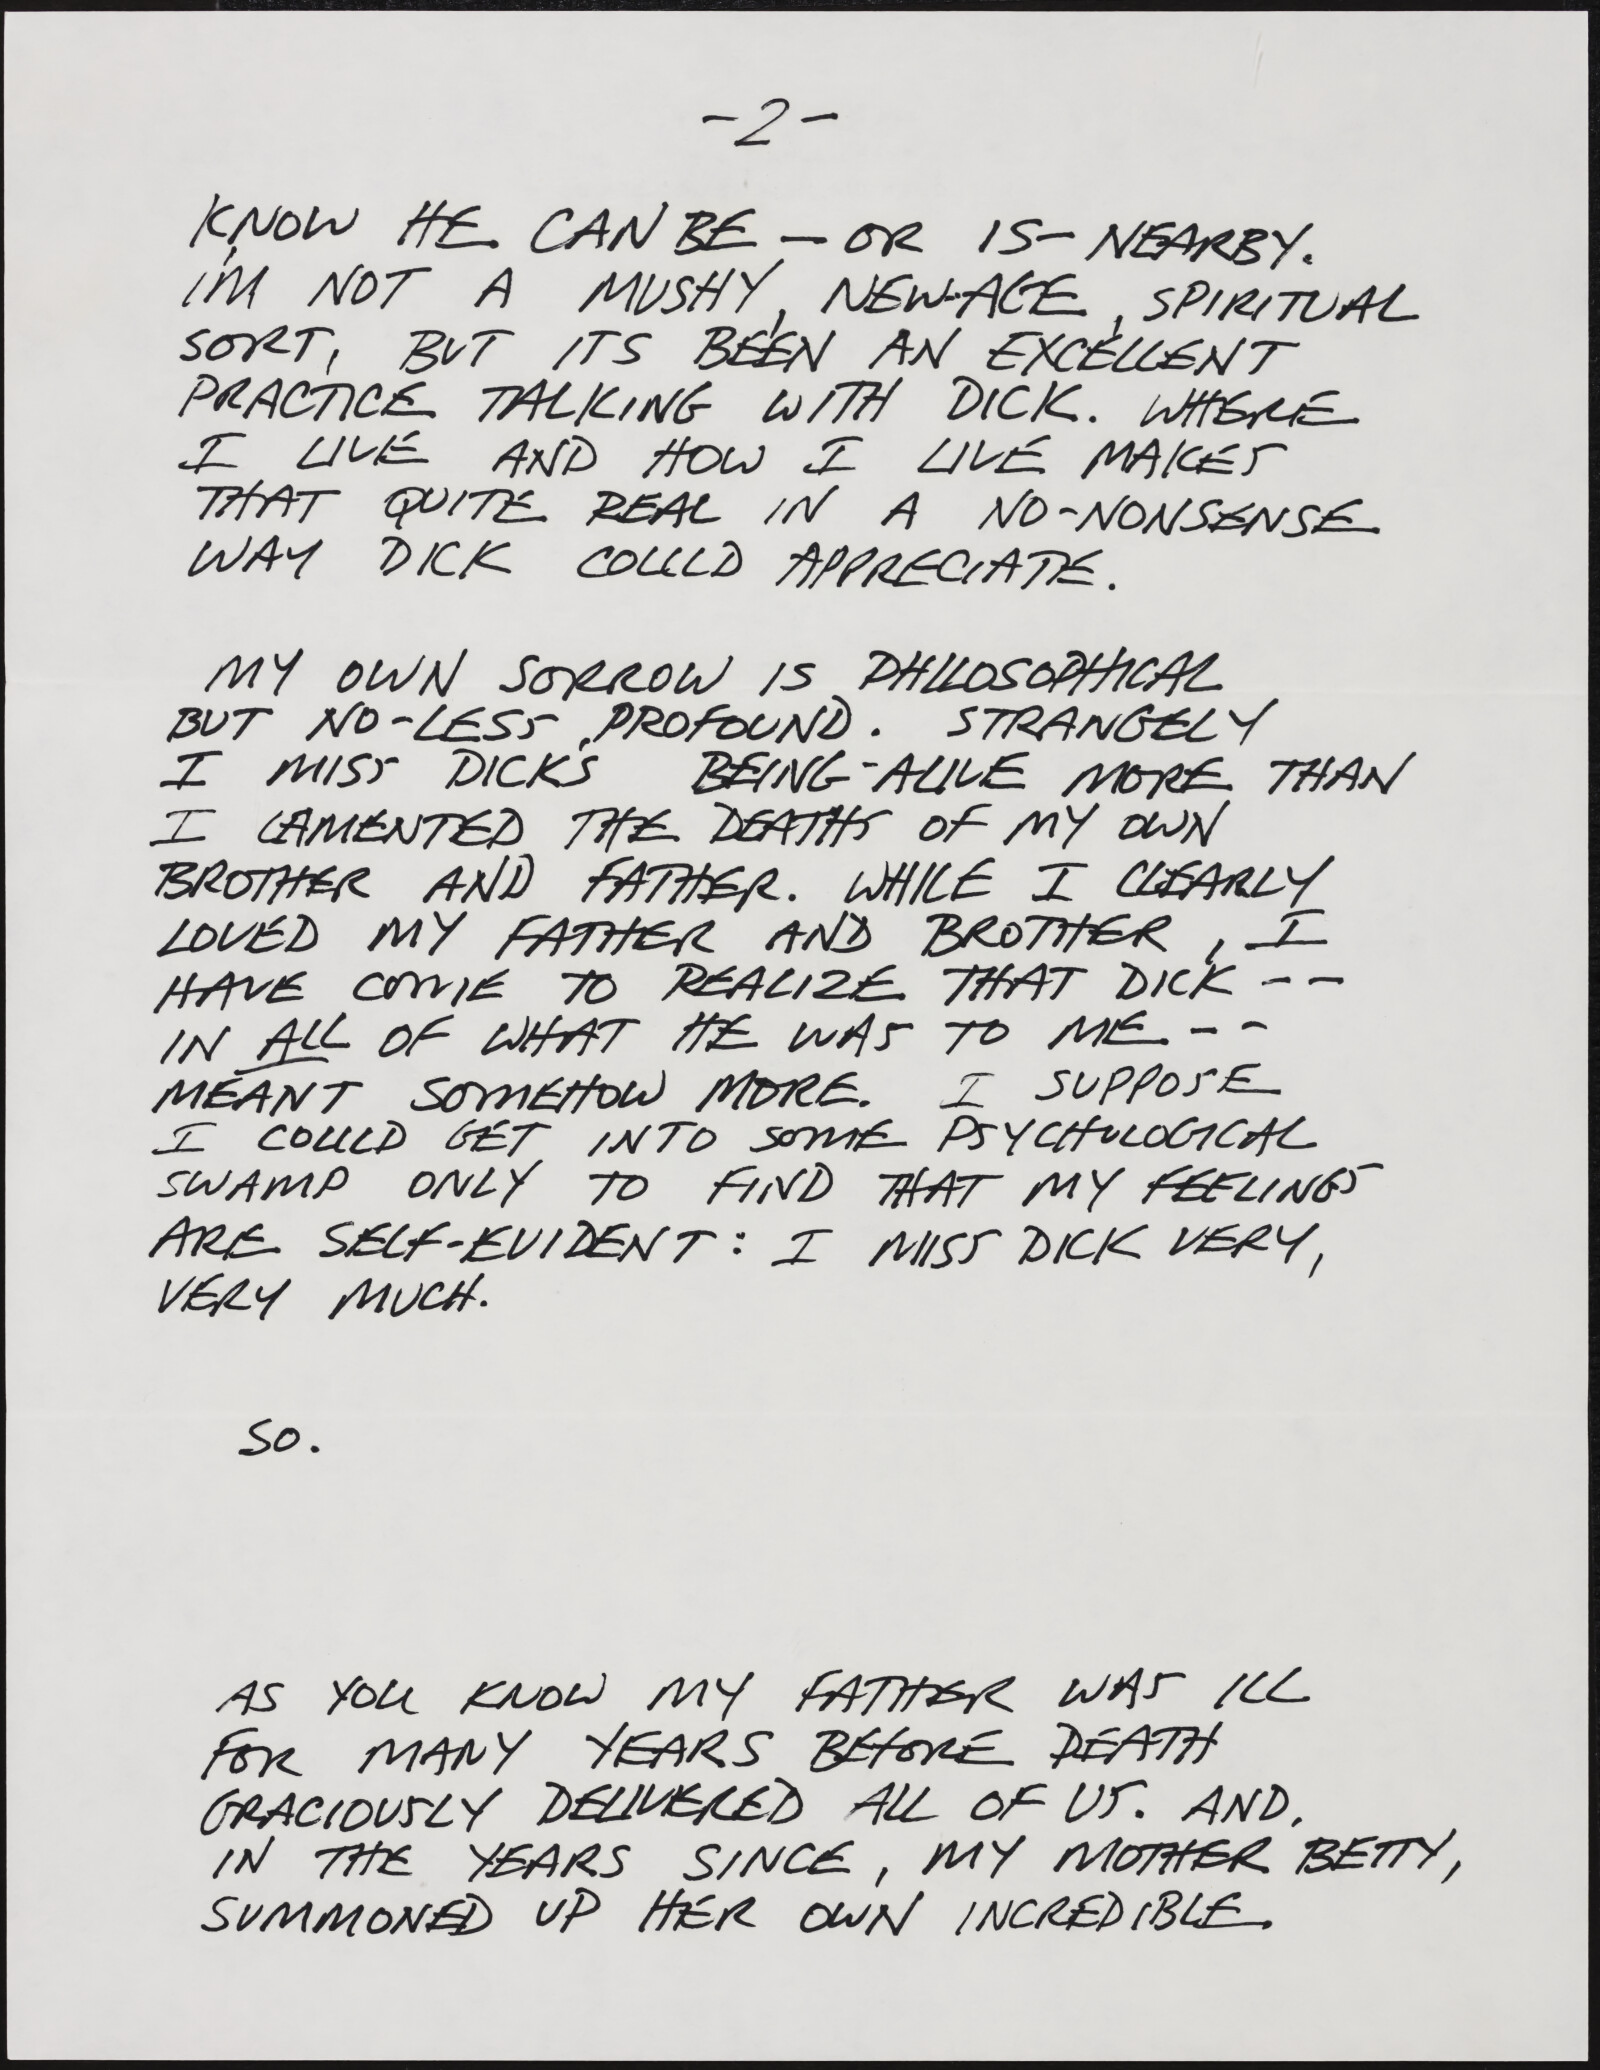 -2-
KNOW HE CAN BE — OR IS — NEARBY.
I'M NOT A MUSHY, NEW-AGE, SPIRITUAL
SORT, BUT ITS BEEN AN EXCELLENT
PRACTICE TALKING WITH DICK. WHERE
I LIVE AND HOW I LIVE MAKES
THAT QUITE REAL IN A NO-NONSENSE
WAY DICK COULD APPRECIATE.
MY OWN SORROW IS PHILOSOPHICAL
BUT NO-LESS PROFOUND. STRANGELY
I MISS DICK'S BEING-ALIVE MORE THAN
I LAMENTED THE DEATHS OF MY OWN
BROTHER AND FATHER. WHILE I CLEARLY
LOVED MY FATHER AND BROTHER, I
HAVE COME TO REALIZE THAT DICK --
IN ALL OF WHAT HE WAS TO ME --
MEANT SOMEHOW MORE. I SUPPOSE
I COULD GET INTO SOME PSYCHOLOGICAL
SWAMP ONLY TO FIND THAT MY FEELINGS
ARE SELF-EVIDENT: I MISS DICK VERY,
VERY MUCH.
SO.
AS YOU KNOW MY FATHER WAS ILL
FOR MANY YEARS BEFORE DEATH
GRACIOUSLY DELIVERED ALL OF US. AND,
IN THE YEARS SINCE, MY MOTHER BETTY,
SUMMONED UP HER OWN INCREDIBLE